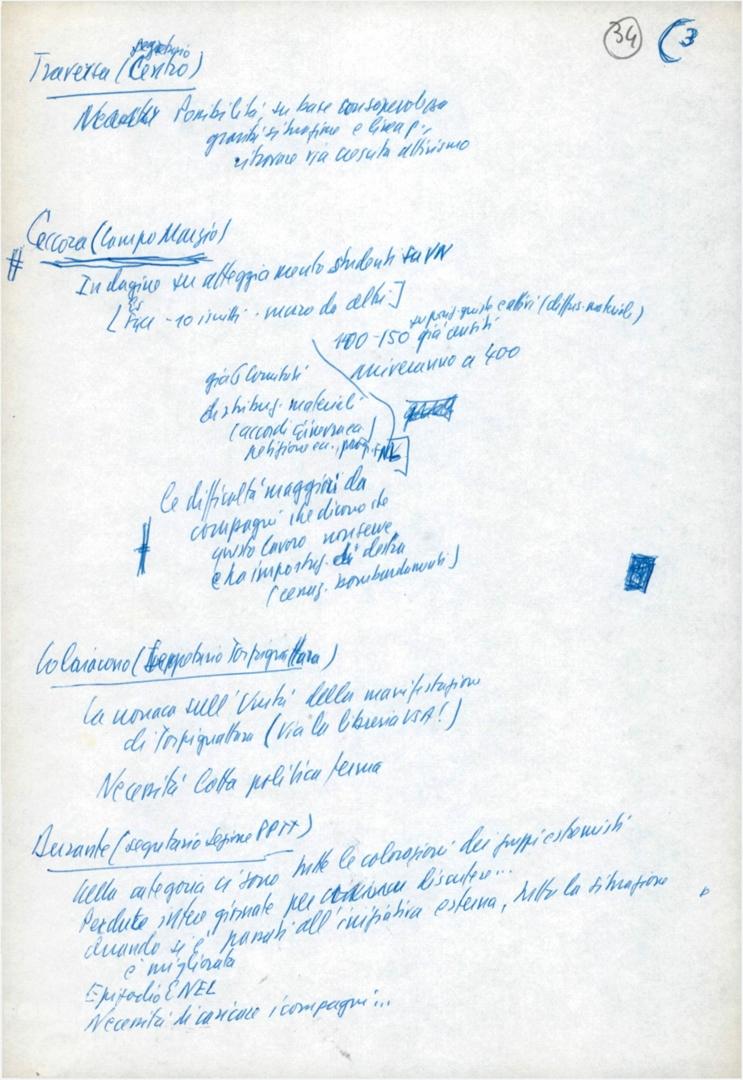 34 (3
segretario
Traversa (Centro)
Possibilità, su base consapevolezza
gravità situazione e linea p.,
ritrovare via crescita attivismo
Ceccora (Campo Marzio)
#
Indagine su atteggiamento studenti su VN
Es
[ - 10 iscritti . da altri]
100-150 già
arriveranno a 400
già 6 Comitati
distribuz. materiali
(accordi Ginevra ecc.
petizione ecc. FNL
Le difficoltà maggiori da
compagni che dicono che
questo lavoro non serve
e ha impostaz. di destra
(cessaz. bombardamenti)
Colaiacono (Segretario Torpignattara)
La cronaca sull'Unità della manifestazione
di Torpignattara (Via la libreria USA!)
Necessità lotta politica ferma
Durante (segretario Sezione PPTT)
Nella categoria ci sono tutte le colorazioni dei gruppi estremisti
Perdute intere giornate per discutere...
Quando si è passati all'iniziativa esterna, tutta la situazione
è migliorata
Episodio ENEL
Necessità di caricare i compagni...